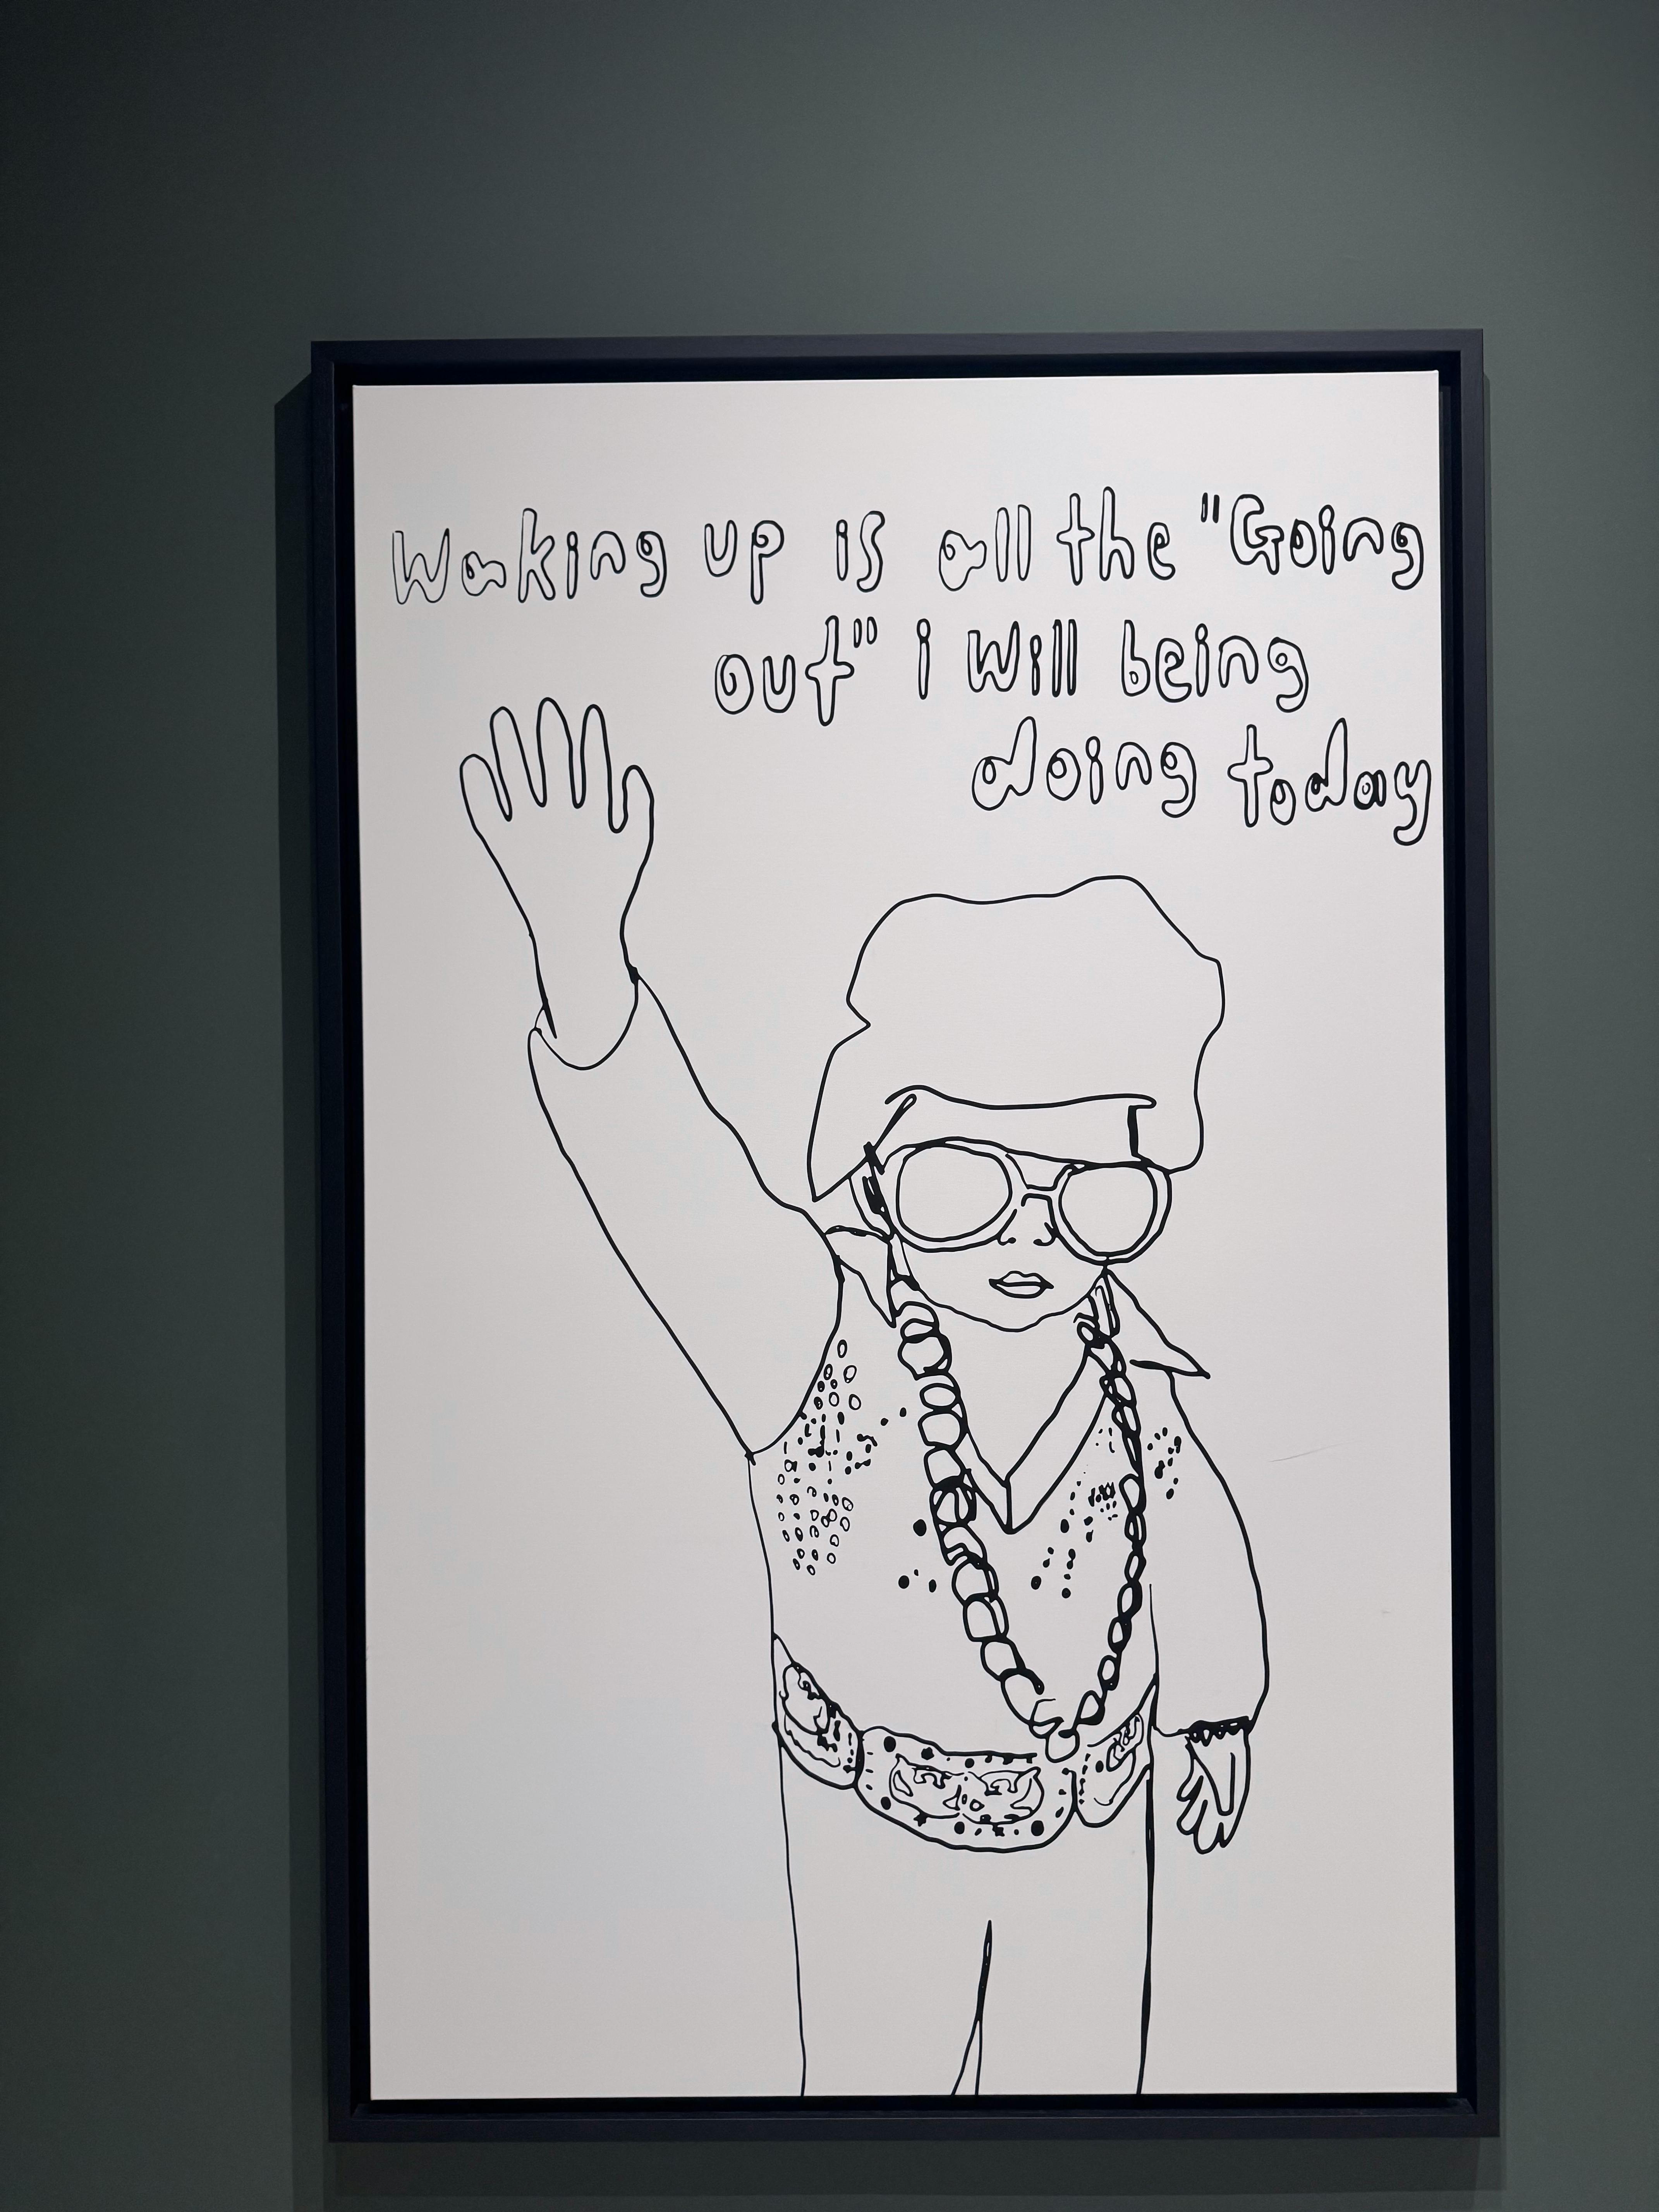 Waking up is all the "Going
out" i will being
doing today